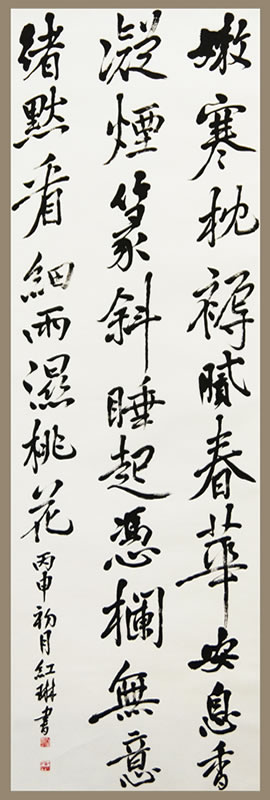 嫩寒枕褥膩春華安息香
凝煙篆斜睡起憑欄無意
緒默看細雨濕桃花
丙申初月紅琳書